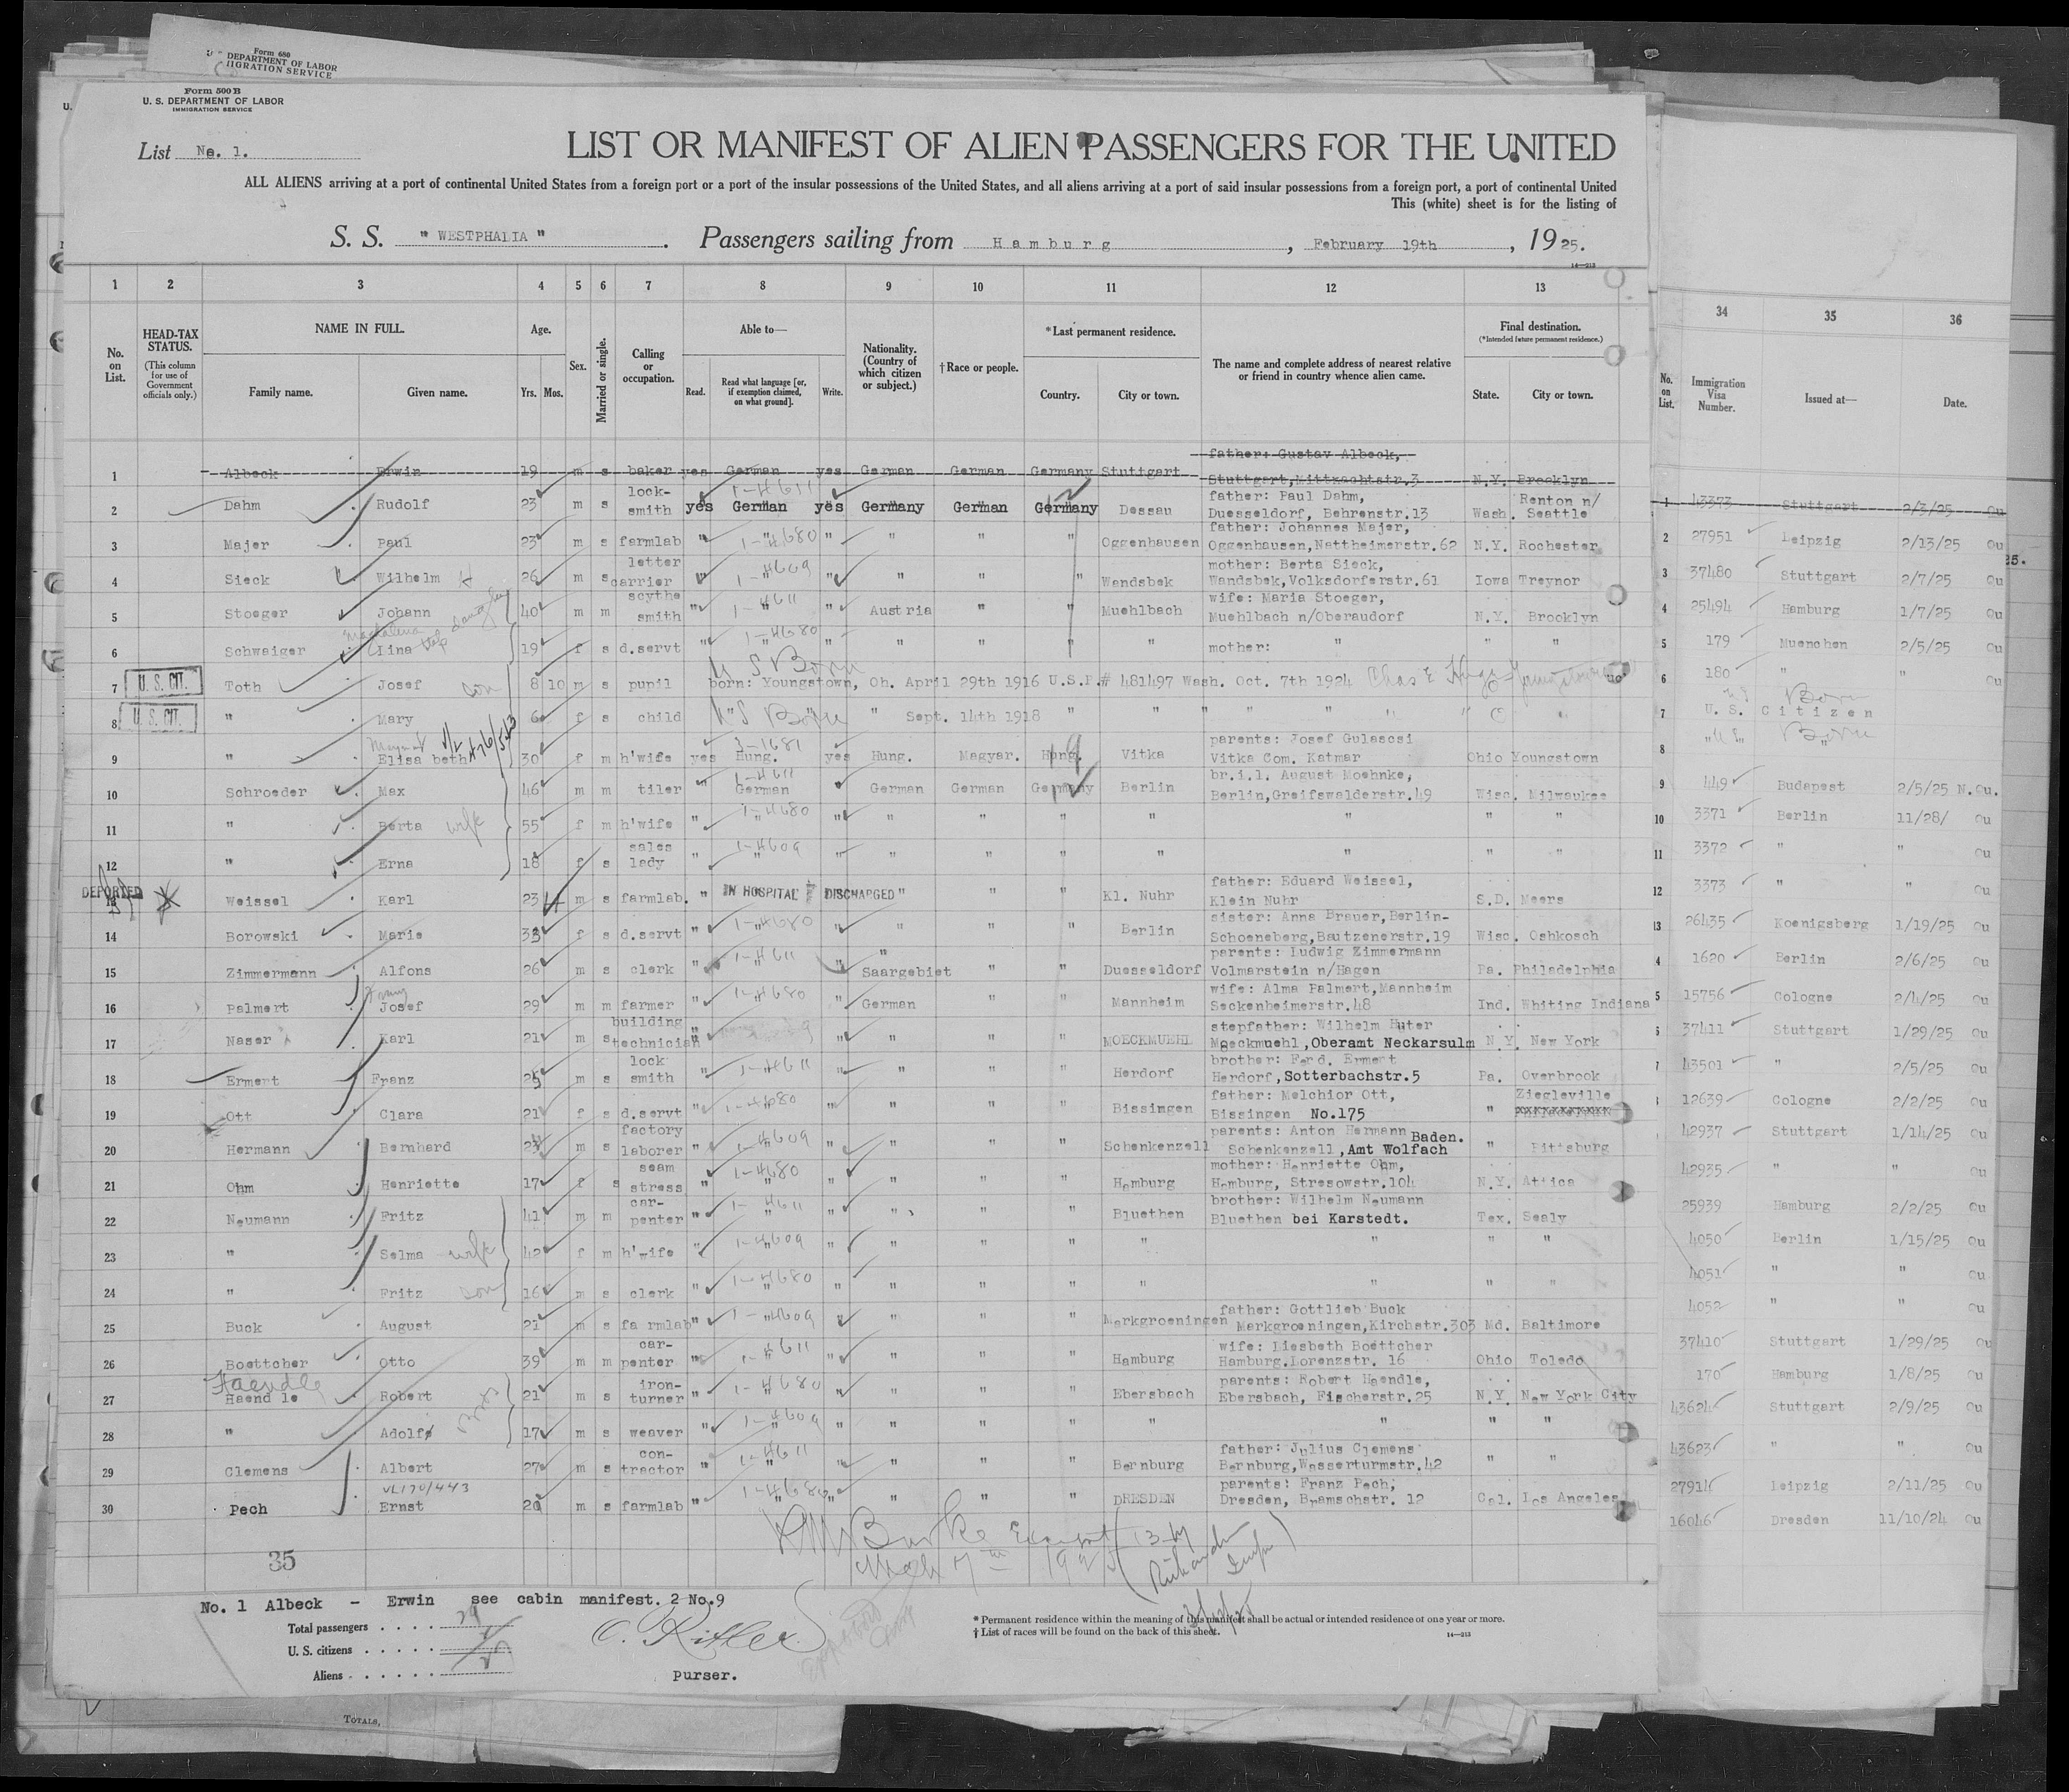 Form 680
DEPARTMENT OF LABOR
IIGRATION SERVICE
Form 500 B
U. S. DEPARTMENT OF LABOR
IMMIGRATION SERVICE
List No. 1.
LIST OR MANIFEST OF ALIEN PASSENGERS FOR THE UNITED
ALL ALIENS arriving at a port of continental United States from a foreign port or a port of the insular possessions of the United States, and all aliens arriving at a port of said insular possessions from a foreign port, a port of continental United
This (white) sheet is for the listing of
S. S. "WESTPHALIA". Passengers sailing from Hamburg, February 19th, 1925.
14—213
1 2 3 4 5 6 7 8 9 10 11 12 13
No. on List. HEAD-TAX STATUS. (This column for use of Government officials only.) NAME IN FULL. Family name. Given name. Age. Yrs. Mos. Sex. Married or single. Calling or occupation. Able to— Read. Read what language [or, if exemption claimed, on what ground]. Write. Nationality. (Country of which citizen or subject.) †Race or people. *Last permanent residence. Country. City or town. The name and complete address of nearest relative or friend in country whence alien came. Final destination. (*Intended future permanent residence.) State. City or town.
1 Albeck Erwin 19 m s baker yes German yes German German Germany Stuttgart father: Gustav Albeck, Stuttgart, Mittnachtstr.3 N.Y. Brooklyn
2 Dahm Rudolf 23 m s lock-smith yes German 1-4611 yes Germany German Germany Dessau father: Paul Dahm, Duesseldorf, Behrenstr.13 Wash. Renton n/ Seattle
3 Majer Paul 23 m s farmlab " " 1-4680 " " " " Oggenhausen father: Johannes Majer, Oggenhausen,Nattheimerstr.62 N.Y. Rochester
4 Sieck Wilhelm 26 m s letter carrier " " 1-4609 " " " " Wandsbek mother: Berta Sieck, Wandsbek,Volksdorferstr.61 Iowa Treynor
5 Stoeger Johann 40 m m scythe smith " 1-4611 " Austria " " Muehlbach wife: Maria Stoeger, Muehlbach n/Oberaudorf N.Y. Brooklyn
6 Schwaiger Magdalena Lina step daughter 19 f s d.servt " " 1-4680 " " " " " mother: " " "
7 U. S. CIT. Toth Josef son 8 10 m s pupil U S Born born: Youngstown, Oh. April 29th 1916 U.S.P.# 481497 Wash. Oct. 7th 1924
8 U. S. CIT. " Mary 6 f s child U S Born " " Sept. 14th 1918 " " " " "
9 " Elisa beth 30 f m h'wife yes Hung. 3-1681 yes Hung. Magyar. Hung. Vitka parents: Josef Gulascsi Vitka Com. Katmar Ohio Youngstown
10 Schroeder Max 46 m m tiler " German 1-4611 " German German Germany Berlin br.i.l. August Moehnke, Berlin,Greifswalderstr.49 Wisc. Milwaukee
11 " Berta wife 55 f m h'wife " " 1-4680 " " " " " " " "
12 " Erna 18 f s sales lady " " 1-4609 " " " " " " " "
DEPORTED
13 Weissel Karl 23 m s farmlab. " IN HOSPITAL DISCHARGED " " " Kl. Nuhr father: Eduard Weissel, Klein Nuhr S.D. Meers
14 Borowski Marie 33 f s d.servt " " 1-4680 " " " " Berlin sister: Anna Brauer,Berlin-Schoeneberg,Bautzenerstr.19 Wisc. Oshkosch
15 Zimmermann Alfons 26 m s clerk " " 1-4611 " " Saargebiet " " Duesseldorf parents: Ludwig Zimmermann Volmarstein n/Hagen Pa. Philadelphia
16 Palmert Josef 29 m m farmer " " 1-4680 " German " " Mannheim wife: Alma Palmert,Mannheim Seckenheimerstr.48 Ind. Whiting Indiana
17 Naser Karl 21 m s building technician " " " " " MOECKMUEHL stepfather: Wilhelm Huter Moeckmuehl,Oberamt Neckarsulm N.Y. New York
18 Ermert Franz 25 m s lock smith " " 1-4611 " " " " Herdorf brother: Ferd. Ermert Herdorf,Sotterbachstr.5 Pa. Overbrook
19 Ott Clara 21 f s d.servt " " 1-4680 " " " " Bissingen father: Melchior Ott, Bissingen No.175 " Ziegleville xxxxxxxxxxx
20 Hermann Bernhard 24 m s factory laborer " " 1-4609 " " " " Schenkenzell parents: Anton Hermann Schenkenzell,Amt Wolfach Baden. " Pittsburg
21 Ohm Henriette 17 f s seam stress " " 1-4680 " " " " Hamburg mother: Henriette Ohm, Hamburg, Stresowstr.104 N.Y. Attica
22 Neumann Fritz 41 m m car-penter " " 1-4611 " " " " Bluethen brother: Wilhelm Neumann Bluethen bei Karstedt. Tex. Sealy
23 " Selma wife 42 f m h'wife " " 1-4609 " " " " " " " "
24 " Fritz son 16 m s clerk " " 1-4680 " " " " " " " "
25 Buck August 21 m s fa rmlab " " 1-4609 " " " " Markgroeningen father: Gottlieb Buck Markgroeningen,Kirchstr.303 Md. Baltimore
26 Boettcher Otto 39 m m car-penter " " 1-4611 " " " " Hamburg wife: Liesbeth Boettcher Hamburg.Lorenzstr. 16 Ohio Toledo
27 Haendle Haend le Robert 21 m s iron-turner " 1-4680 " " " " Ebersbach parents: Robert Haendle, Ebersbach, Fischerstr.25 N.Y. New York City
28 " Adolf 17 m s weaver " " 1-4609 " " " " " " " "
29 Clemens Albert 27 m s con-tractor " " 1-4611 " " " " Bernburg father: Julius Clemens Bernburg,Wasserturmstr.42 " "
30 Pech Ernst 20 m s farmlab " " 1-4680 " " " " DRESDEN parents: Franz Pech, Dresden, Bramschstr. 12 Cal. Los Angeles
35
No. 1 Albeck - Erwin see cabin manifest. 2 No.9
Total passengers . . . . 29
U. S. citizens . . . . .
Aliens . . . . . .
purser.
* Permanent residence within the meaning of this manifest shall be actual or intended residence of one year or more.
† List of races will be found on the back of this sheet.
14—213
TOTALS,
34 35 36
No. on List. Immigration Visa Number. Issued at— Date.
1 43373 Stuttgart 2/3/25 Qu
2 27951 Leipzig 2/13/25 Qu
3 37480 Stuttgart 2/7/25 Qu
4 25494 Hamburg 1/7/25 Qu
5 179 Muenchen 2/5/25 Qu
6 180 " " Qu
7 U. S. Citizen US Born
8 " " " US Born
9 449 Budapest 2/5/25 N.Qu.
10 3371 Berlin 11/28/ Qu
11 3372 " " Qu
12 3373 " " Qu
13 26435 Koenigsberg 1/19/25 Qu
4 1620 Berlin 2/6/25 Qu
5 15756 Cologne 2/4/25 Qu
6 37411 Stuttgart 1/29/25 Qu
7 43501 " 2/5/25 Qu
12639 Cologne 2/2/25 Qu
42937 Stuttgart 1/14/25 Qu
42935 " " Qu
25939 Hamburg 2/2/25 Qu
4050 Berlin 1/15/25 Qu
4051 " " Qu
4052 " " Qu
37410 Stuttgart 1/29/25 Qu
170 Hamburg 1/8/25 Qu
43624 Stuttgart 2/9/25 Qu
43623 " " Qu
27914 Leipzig 2/11/25 Qu
16046 Dresden 11/10/24 Qu